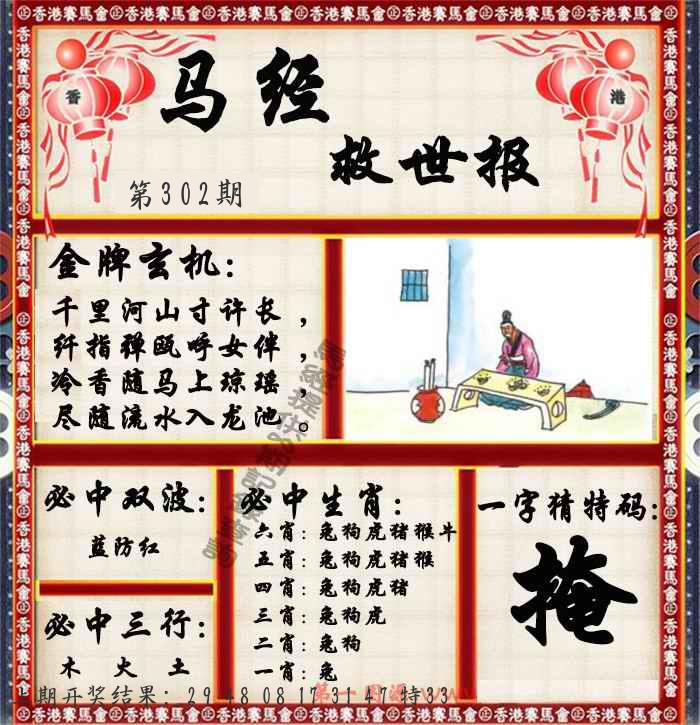 香港賽馬會 香港賽馬會 香港賽馬會 香港賽馬會 香港賽馬會 香港賽馬會
香 港
马经
救世报
第302期
金牌玄机:
千里河山寸许长，
纤指弹瓯呼女伴，
冷香随马上琼瑶，
尽随流水入龙池。
必中双波:
蓝防红
必中三行:
木 火 土
必中生肖:
六肖: 兔狗虎猪猴牛
五肖: 兔狗虎猪猴
四肖: 兔狗虎猪
三肖: 兔狗虎
二肖: 兔狗
一肖: 兔
一字猜特码:
掩
期开奖结果: 29 48 08 17 31 47 特33